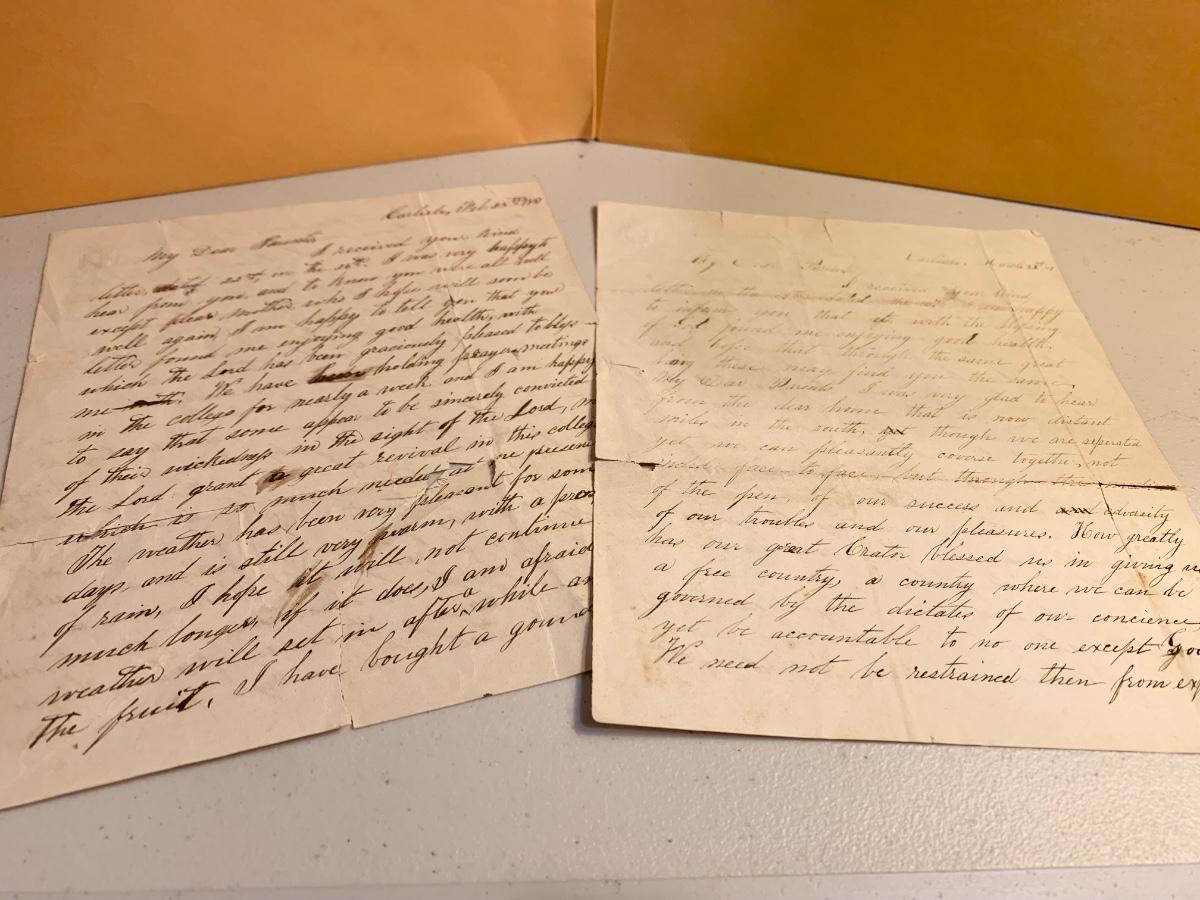 Carlisle, Feb.
My Dear Parents,
I received your kind
letter in the I was very happy to
hear from you, and to know you were all well
except Mother who I hope will soon be
well again, I am happy to tell you that your
letter found me enjoying good health, with
which the Lord has been graciously pleased to bless
me We have been holding prayer meetings
in the college for nearly a week and I am happy
to say that some appear to be sincerely convicted
of their wickedness in the sight of the Lord,
The Lord grant a great revival in this college
which is so much needed at present
The weather has been very pleasant for some
days and is still very warm, with a
of rain, I hope it will, not continue
much longer, if it does, I am afraid
weather will set in after, a while
The fruit, I have bought a
My Dear Parents Carlisle, March
I received your kind
letter happy
to inform you that it, with the blessing
of God found me enjoying good health.
and hope that through the same great
these may find you the same.
My Dear Parents I was very glad to hear
from the dear home that is now distant
miles in the south, yet though we are seperated
yet we can pleasantly coverse togethe, not
indeed face to face, but through the
of the pen, of our success and adversity
of our troubles and our pleasures. How greatly
has our great Crator blessed us in giving us
a free country, a country where we can be
governed by the dictates of our concience,
yet be accountable to no one except
We need not be restrained then from